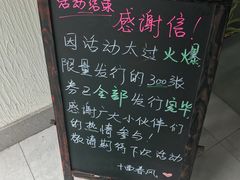 活动结束
感谢信！
因活动太过火爆
限量发行的300张
券已全部发行完毕
感谢广大小伙伴们
的热情参与！
敬请期待下次活动